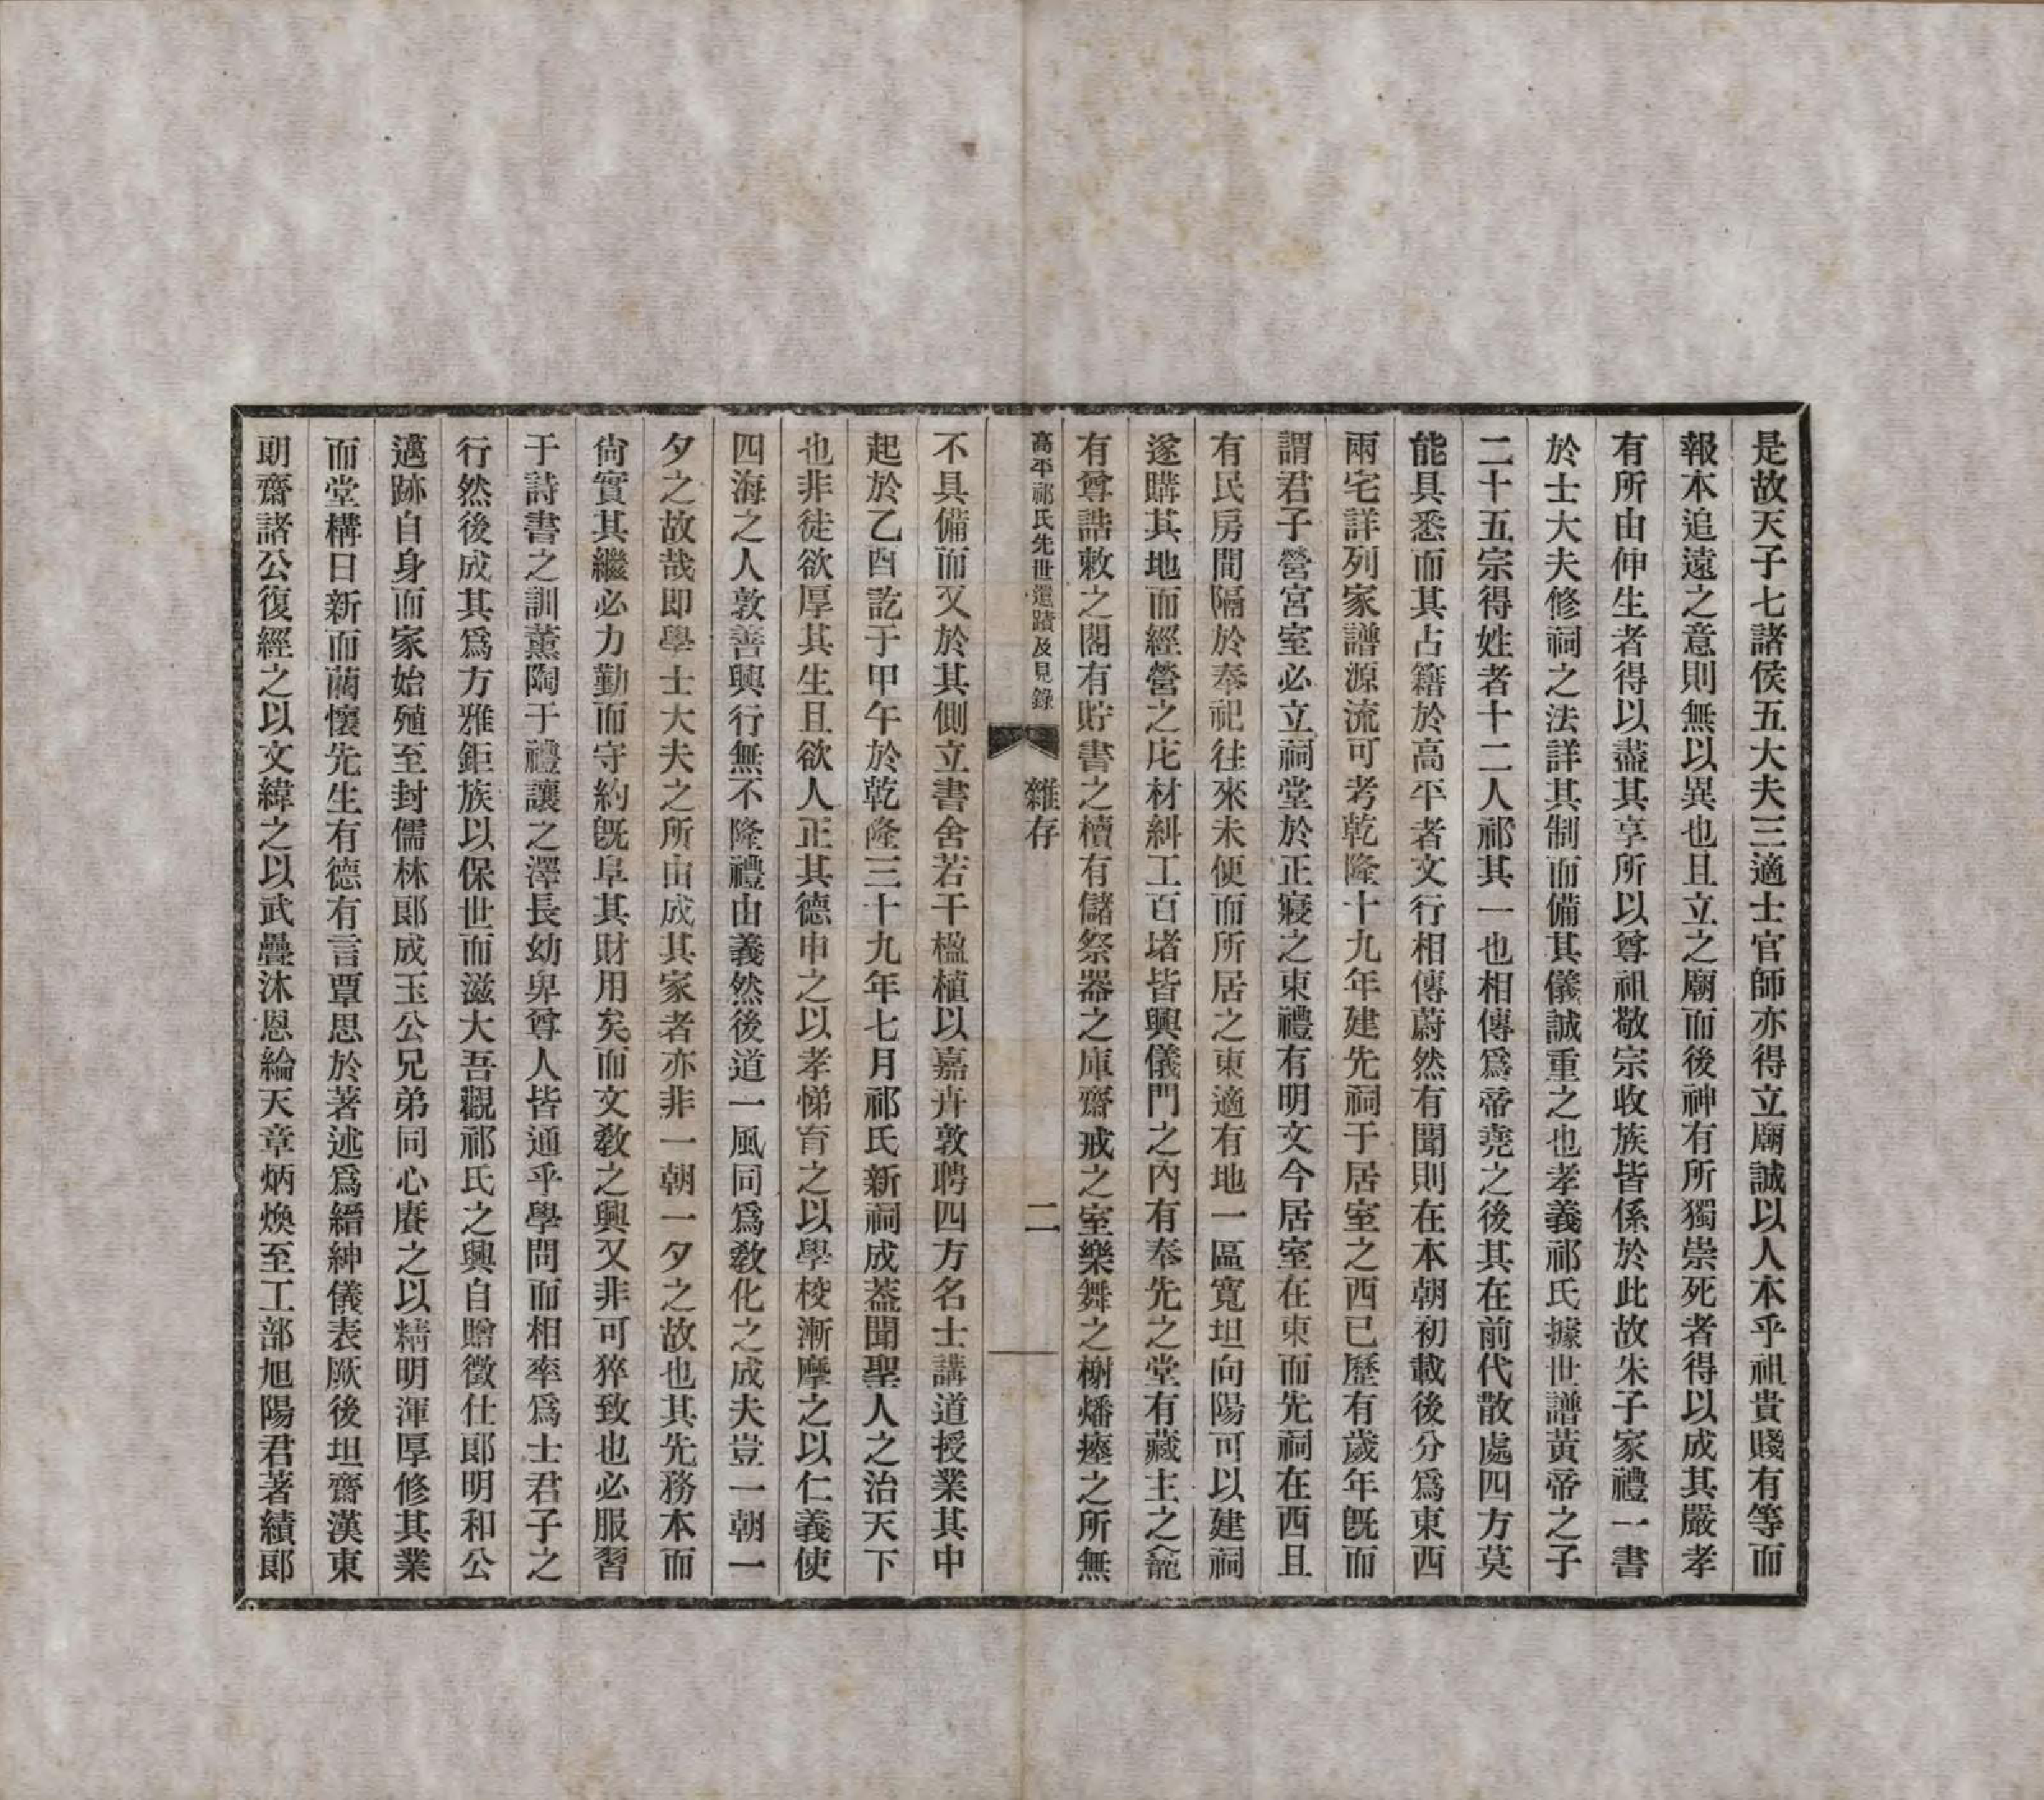 是故天子七諸侯五大夫三適士官師亦得立廟誠以人本乎祖貴賤有等而
報本追遠之意則無以異也且立之廟而後神有所獨崇死者得以成其嚴孝
有所由伸生者得以盡其享所以尊祖敬宗收族皆係於此故朱子家禮一書
於士大夫修祠之法詳其制而備其儀誠重之也孝義祁氏據世譜黃帝之子
二十五宗得姓者十二人祁其一也相傳爲帝堯之後其在前代散處四方莫
能具悉而其占籍於高平者文行相傳蔚然有聞則在本朝初載後分爲東西
兩宅詳列家譜源流可考乾隆十九年建先祠于居室之西已歷有歲年旣而
謂君子營宮室必立祠堂於正寢之東禮有明文今居室在東而先祠在西且
有民房間隔於奉祀往來未便而所居之東適有地一區寬坦向陽可以建祠
遂購其地而經營之庀材糾工百堵皆興儀門之內有奉先之堂有藏主之龕
有尊誥敕之閣有貯書之樻有儲祭器之庫齋戒之室樂舞之榭燔瘞之所無
高平祁氏先世遺蹟及見錄
雜存
二
不具備而又於其側立書舍若干楹植以嘉卉敦聘四方名士講道授業其中
起於乙酉訖于甲午於乾隆三十九年七月祁氏新祠成蓋聞聖人之治天下
也非徒欲厚其生且欲人正其德申之以孝悌育之以學校漸摩之以仁義使
四海之人敦善興行無不隆禮由義然後道一風同爲敎化之成夫豈一朝一
夕之故哉卽學士大夫之所由成其家者亦非一朝一夕之故也其先務本而
尙實其繼必力勤而守約旣阜其財用矣而文敎之興又非可猝致也必服習
于詩書之訓薰陶于禮讓之澤長幼卑尊人皆通乎學問而相率爲士君子之
行然後成其爲方雅鉅族以保世而滋大吾觀祁氏之興自贈徵仕郎明和公
邁跡自身而家始殖至封儒林郎成玉公兄弟同心賡之以精明渾厚修其業
而堂構日新而藺懷先生有德有言覃思於著述爲縉紳儀表厥後坦齋漢東
朗齋諸公復經之以文緯之以武疊沐恩綸天章炳煥至工部旭陽君著績郎